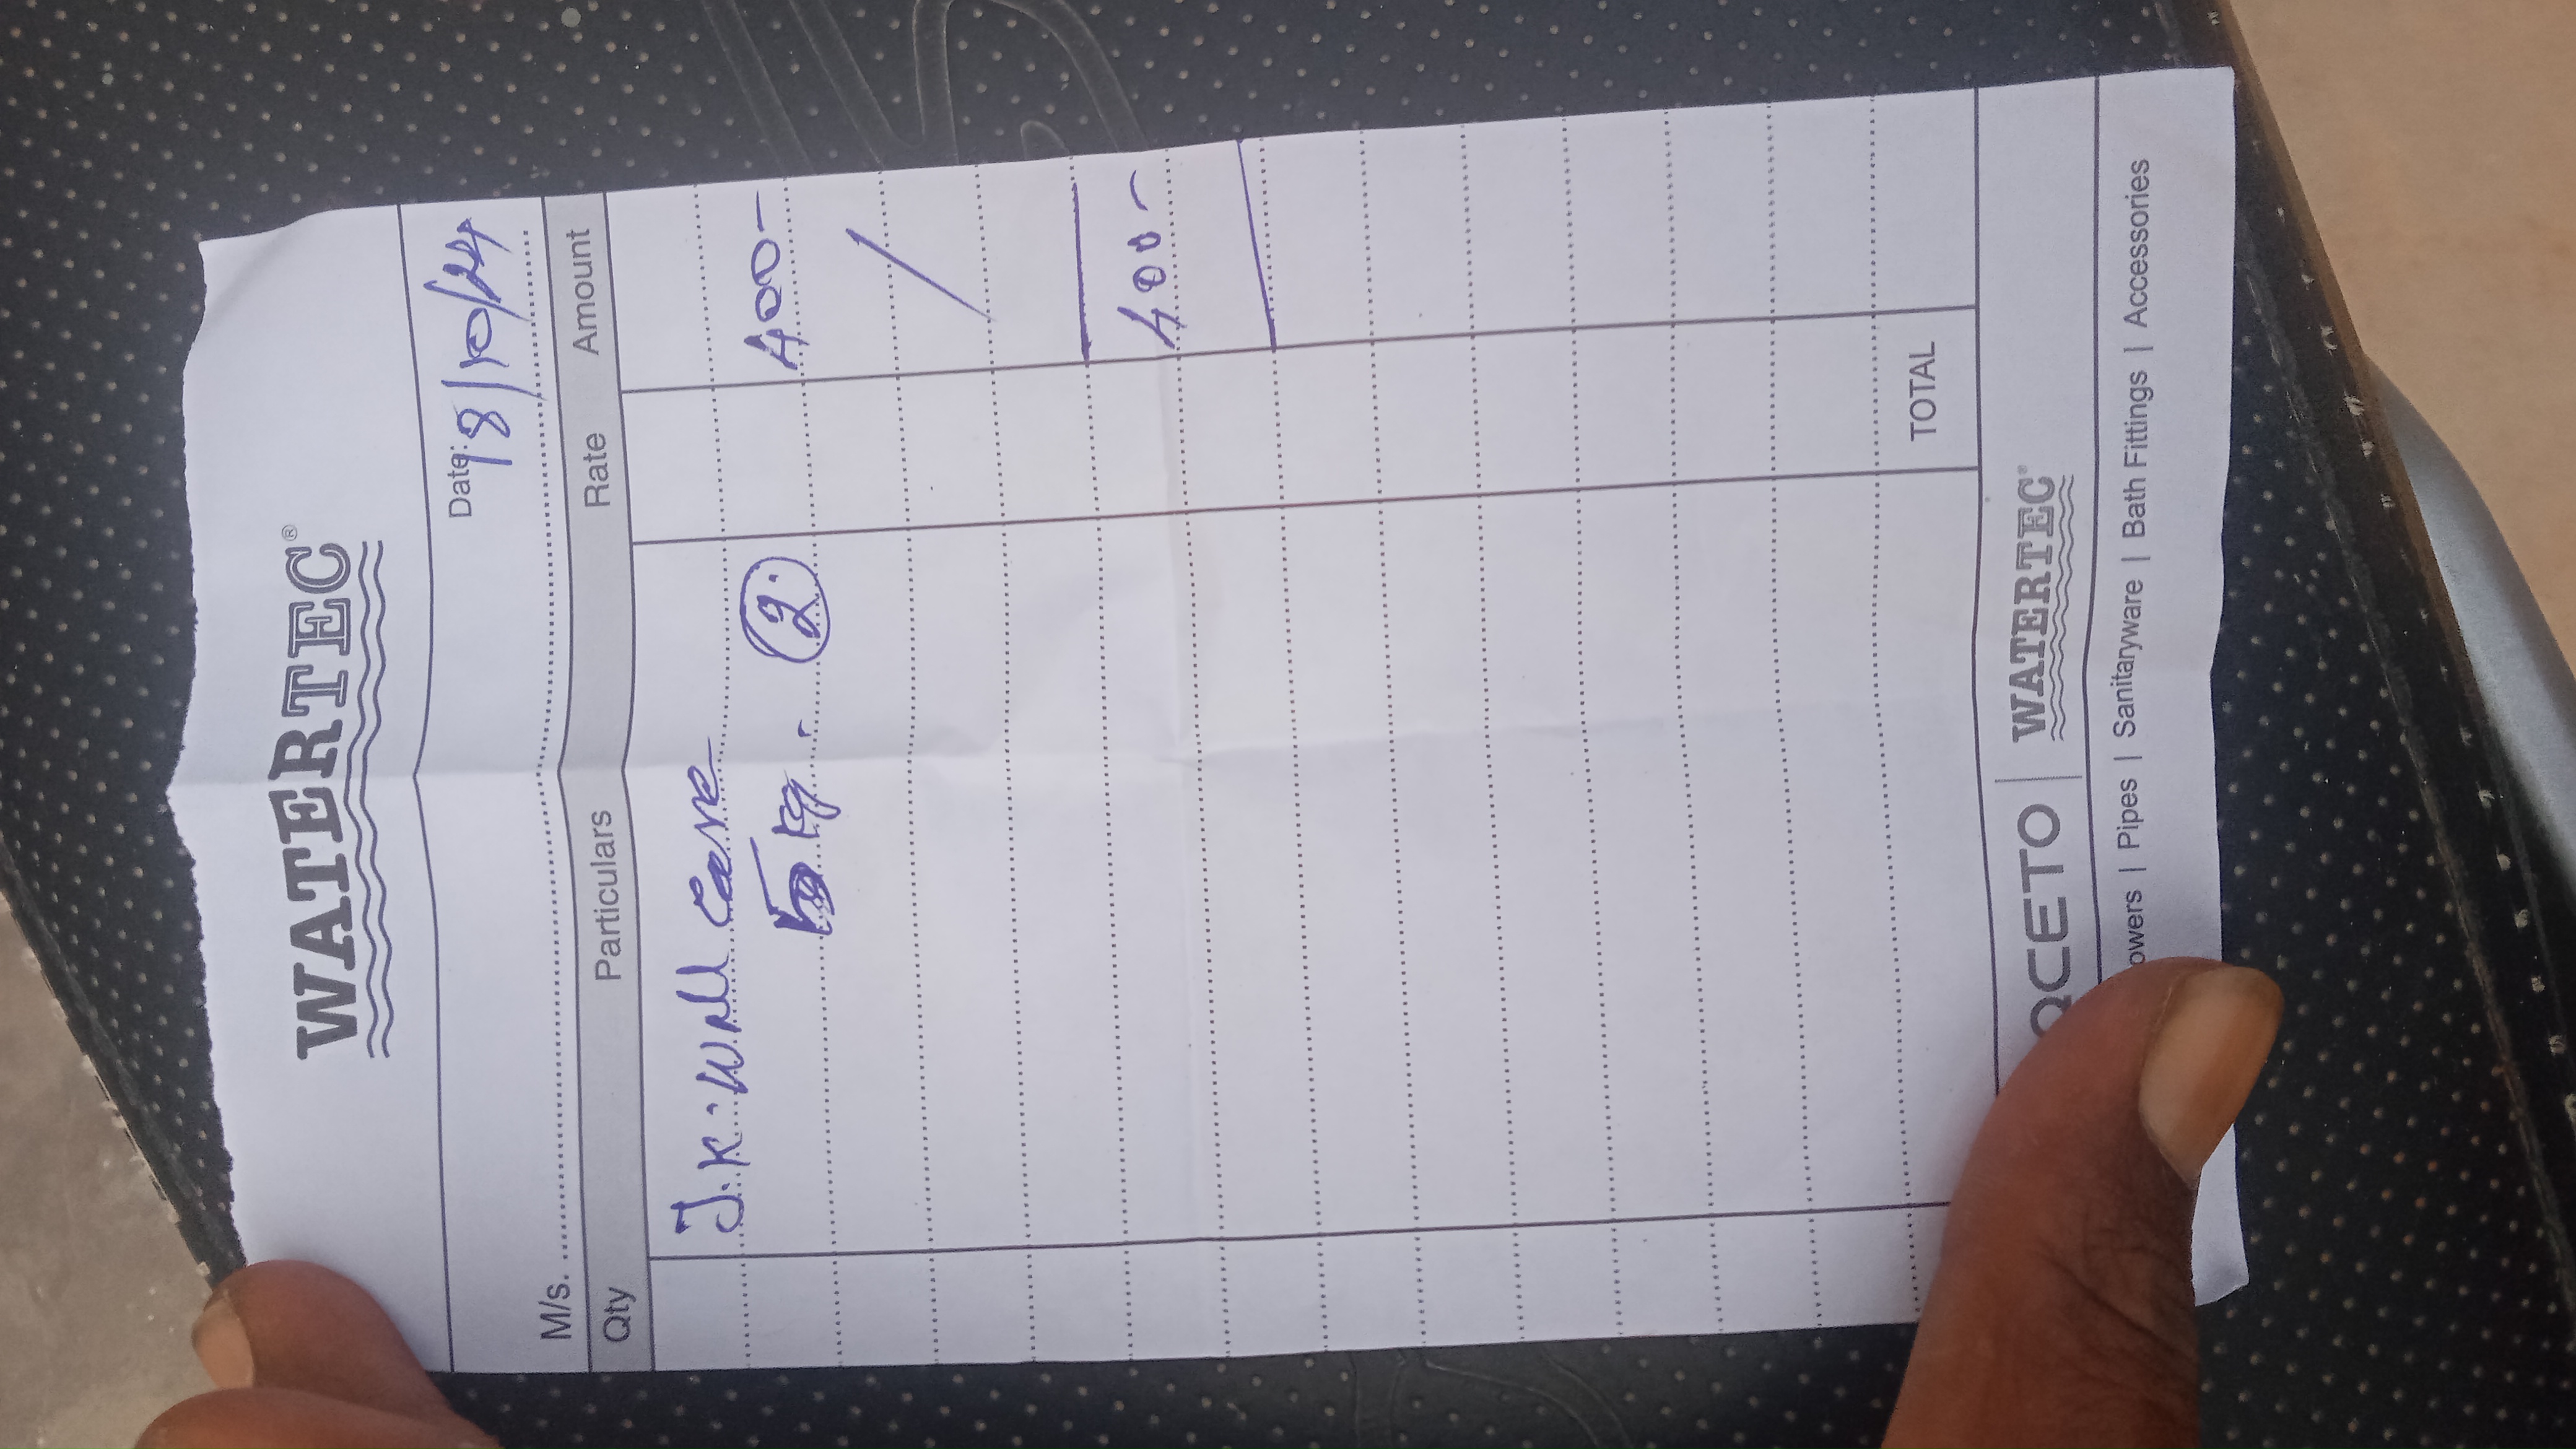 WATERTEC®
Date: 18/10/24
M/s.
Qty Particulars Rate Amount
J.K. Wall Care
5 kg. 2. 400-
400-
TOTAL
QCETO | WATERTEC®
owers | Pipes | Sanitaryware | Bath Fittings | Accessories